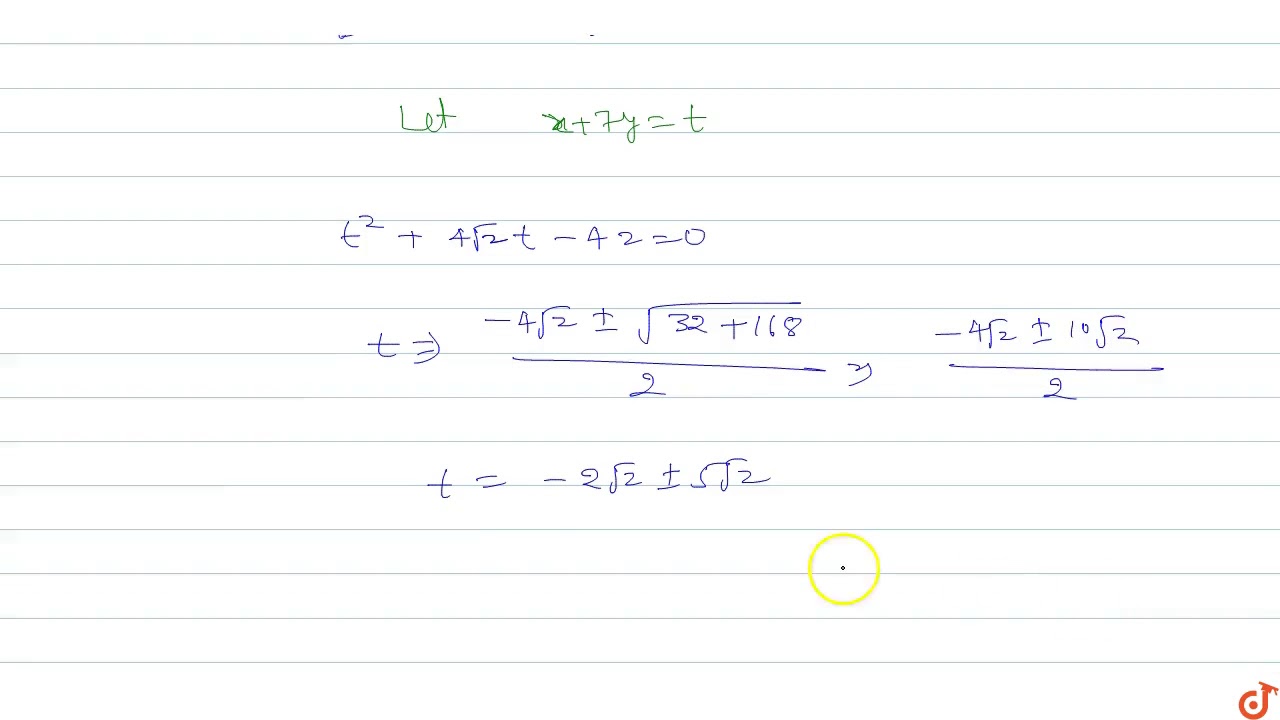 Let x+7y=t
t² + 4√2 t - 42 = 0
t ⇒ (-4√2 ± √(32+168))/2 ⇒ (-4√2 ± 10√2)/2
t = -2√2 ± 5√2